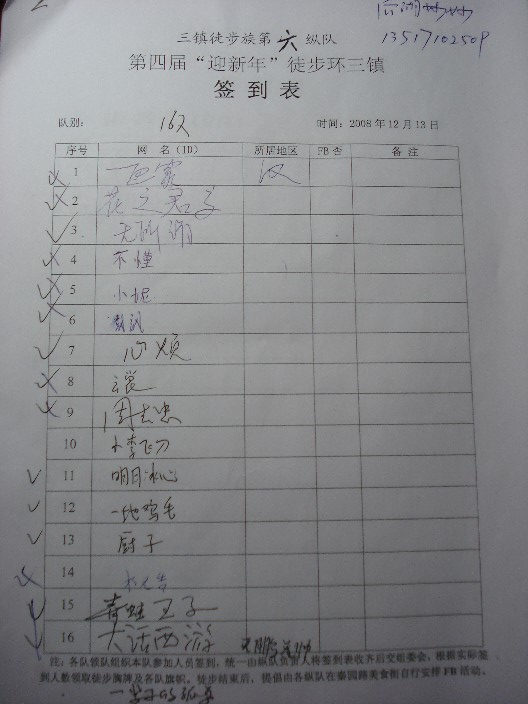 13517102509
三镇徒步族第六纵队
第四届“迎新年”徒步环三镇
签到表
队别： 时间：2008年12月13日
序号 网 名（ID） 所居地区 FB否 备 注
1 汉
2 花之君子
3
4 不懂
5 小妮
6
7 心烦
8
9 周志忠
10 小李飞刀
11 明日冰心
12 一地鸡毛
13 厨子
14
15 青蛙王子
16 大话西游
注：各队领队组织本队参加人员签到，统一由纵队负责人将签到表收齐后交组委会，根据实际签
到人数领取徒步胸牌及各队旗帜。徒步结束后，提倡由各纵队在秦园路美食街自行安排FB活动。